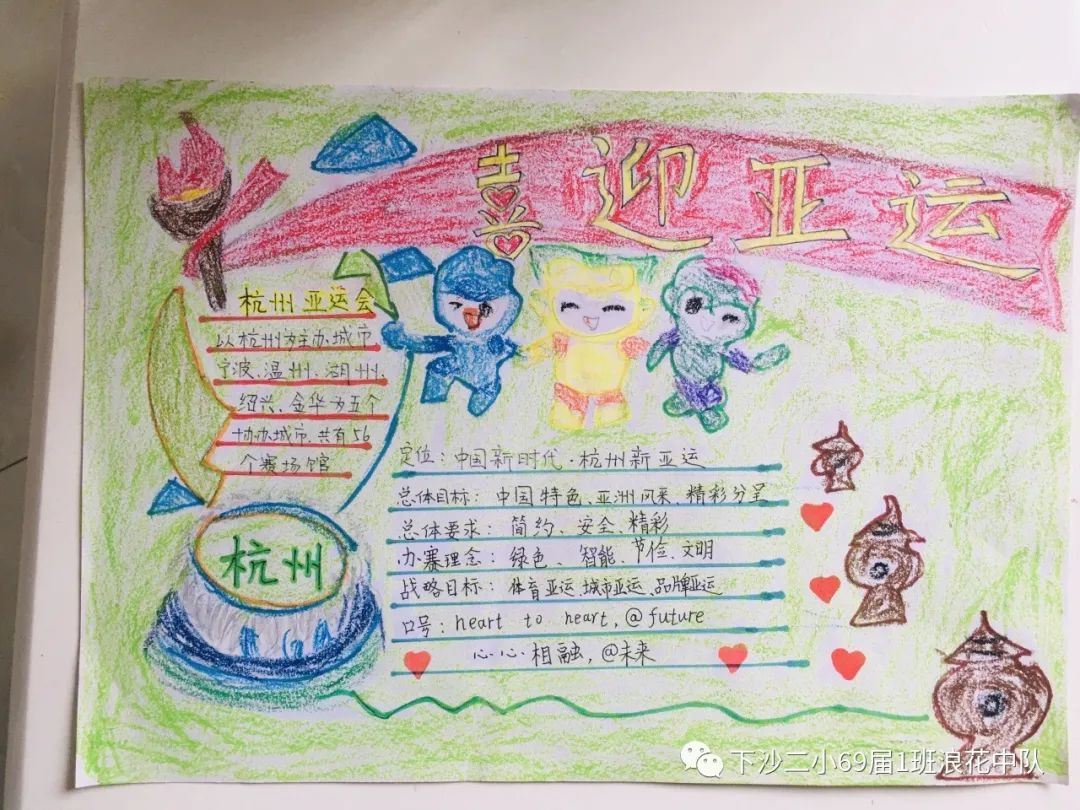 喜迎亚运
杭州亚运会
以杭州为主办城市
宁波、温州、湖州、
绍兴、金华为五个
协办城市,共有56
个赛场馆
杭州
定位:中国新时代·杭州新亚运
总体目标:中国特色、亚洲风采、精彩分呈
总体要求:简约、安全、精彩
办赛理念:绿色、智能、节俭、文明
战略目标:体育亚运、城市亚运、品牌亚运
口号:heart to heart,@future
心心相融,@未来
下沙二小69届1班浪花中队